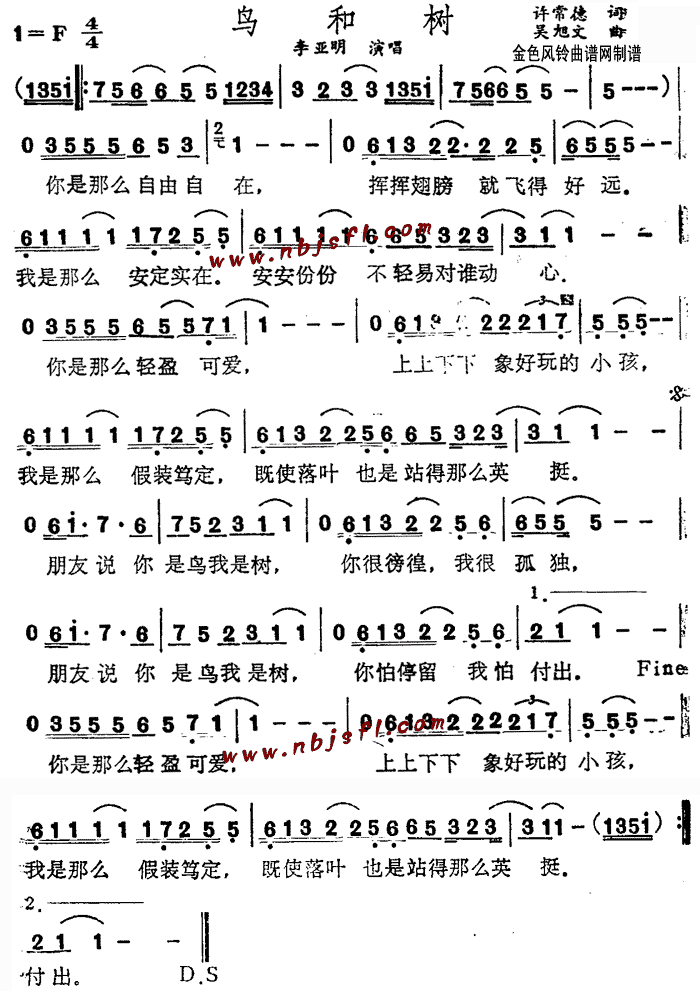 鸟 和 树
许常德 词
吴旭文 曲
1=F 4/4
李亚明 演唱
金色风铃曲谱网制谱
(1351 ‖: 7 5 6 6 5 5 1234 | 3 2 3 3 1351 | 75665 5 - | 5 - - - ) |
0 3555 5653 | 2 1 - - - | 0 6132 2· 2 2 5 | 6555 5 - - |
你是那么自由自 在, 挥挥翅膀 就飞得 好 远.
6111 1 1725 5 | 6111 1 6 65323 | 311 - - |
www.nbjsfl.com
我是那么 安定实在. 安安份份 不轻易对谁动 心.
0 3555 65571 | 1 - - - | 0 61 222217 | 5 55 - - |
你是那么轻盈 可爱, 上上下下 象好玩的 小 孩,
6111 1 1725 5 | 6132 256 65323 | 31 1 - - |
我是那么 假装笃定, 既使落叶 也是站得那么英 挺.
0 61· 7· 6 | 752311 | 0 6132 2 56 | 655 5 - - |
朋友说 你 是鸟我是树, 你很徬徨, 我很 孤 独,
1.
0 61· 7· 6 | 7 5 2311 | 0 6132 2 5 6 | 21 1 - - |
朋友说 你 是鸟我是树, 你怕停留 我怕 付出. Fine
0 3555 6571 | 1 - - - | 0 6132 222217 | 5 55 - - |
www.nbjsfl.com
你是那么轻盈可爱, 上上下下 象好玩的 小 孩,
6111 1 1725 5 | 6132 25665323 | 311 - (1351) :‖
我是那么 假装笃定, 既使落叶 也是站得那么英 挺.
2.
21 1 - - ‖
付出。 D.S